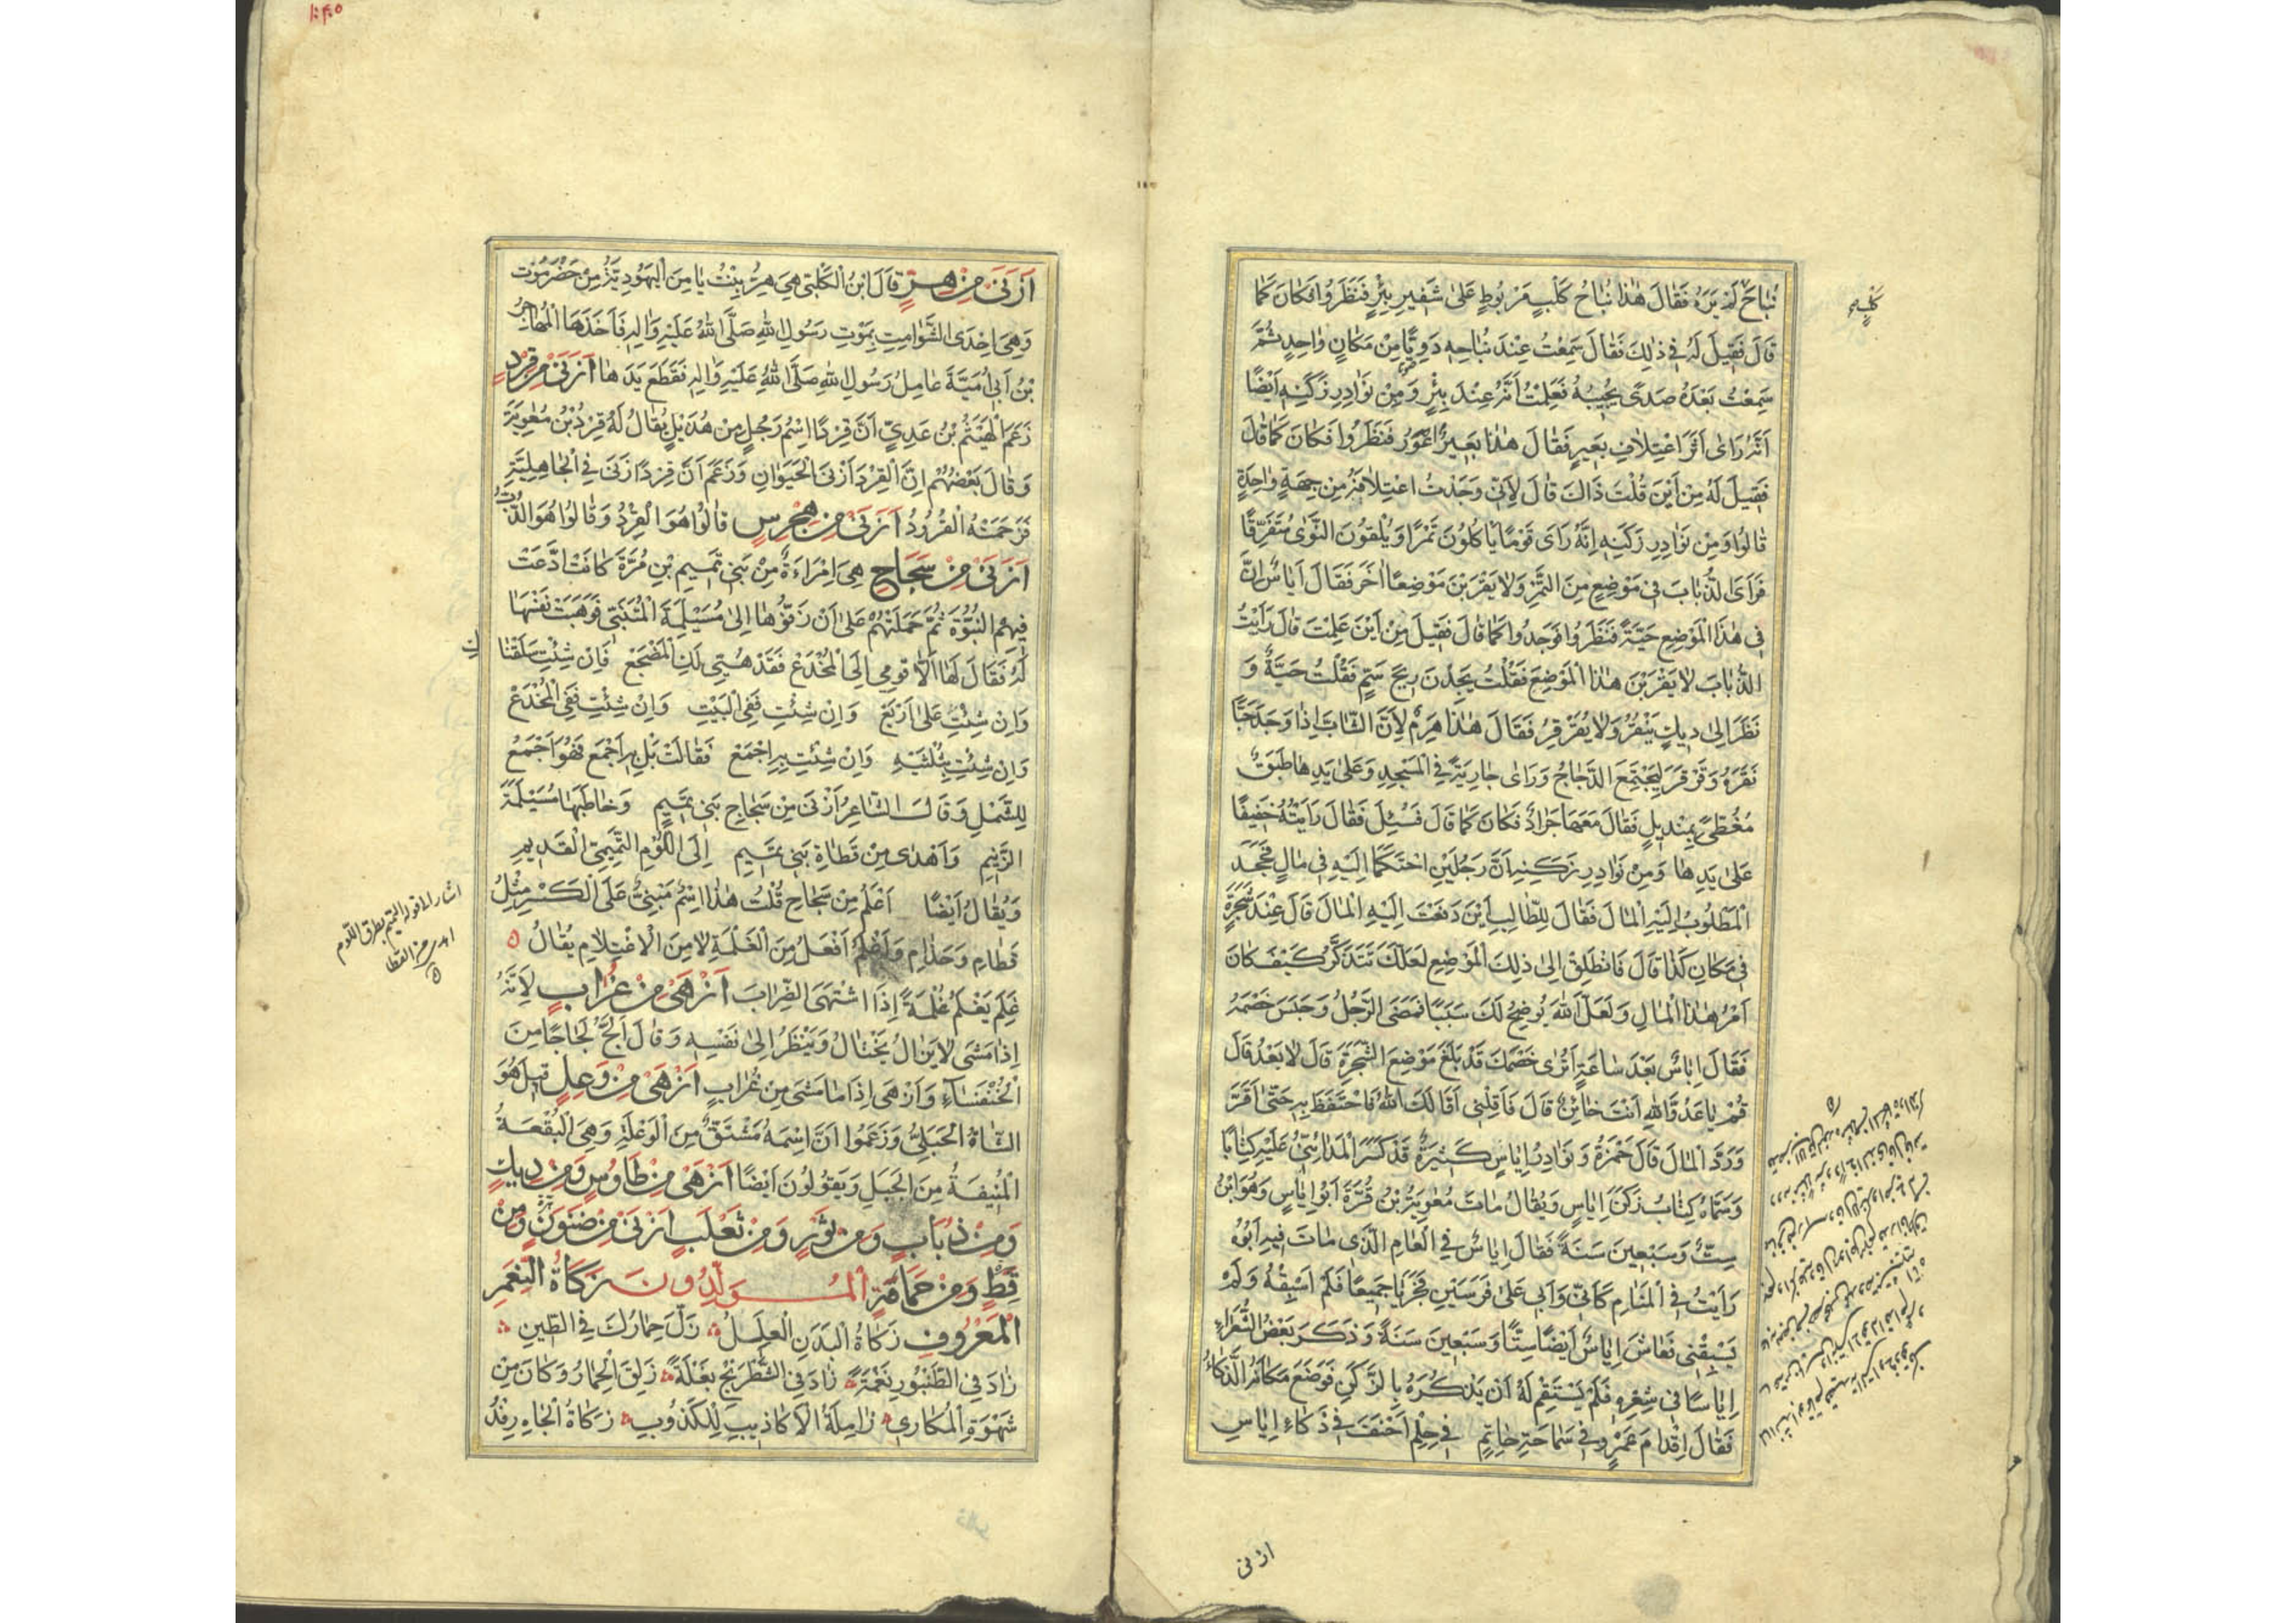 نُبَاحَ لَمْ يَرَهُ فَقَالَ هٰذَا نُبَاحُ كَلْبٍ مَرْبُوطٍ عَلىٰ شَفِيرِ بِئْرٍ فَنَظَرُوا فَكَانَ كَمَا
قَالَ فَقِيلَ لَهُ فِي ذٰلِكَ فَقَالَ سَمِعْتُ عِنْدَ نُبَاحِهِ دَوِيًّا مِنْ مَكَانٍ وٰاحِدٍ ثُمَّ
سَمِعْتُ بَعْدَهُ صَدًى يُجِيبُهُ فَعَلِمْتُ أَنَّهُ عِنْدَ بِئْرٍ وَمِنْ نَوَادِرِ زَكَنِهِ أَيْضًا
أَنَّهُ رَاىٰ أَثَرَ اعْتِلَافِ بَعِيرٍ فَقَالَ هٰذَا بَعِيرٌ أَعْوَرُ فَنَظَرُوا فَكَانَ كَمَا قَالَ
فَقِيلَ لَهُ مِنْ أَيْنَ قُلْتَ ذَاكَ قَالَ لِأَنِّي وَجَدْتُ اعْتِلَافَهُ مِنْ جِهَةٍ وٰاحِدَةٍ
قَالُوا وَمِنْ نَوَادِرِ زَكَنِهِ إِنَّهُ رَاىَ قَوْمًا يَأْكُلُونَ تَمْرًا وَيُلْقُونَ النَّوىٰ مُتَفَرِّقًا
فَرَاىَ الذُّبَابَ فِي مَوْضِعٍ مِنَ التَّمْرِ وَلَا يَقْرَبْنَ مَوْضِعًا اٰخَرَ فَقَالَ اَيَاسٌ اِنَّ
فِي هٰذَا الْمَوْضِعِ حَيَّةً فَنَظَرُوا فَوَجَدُوا كَمَا قَالَ فَقِيلَ مِنْ أَيْنَ عَلِمْتَ قَالَ رَأَيْتُ
الذُّبَابَ لَا يَقْرَبْنَ هٰذَا الْمَوْضِعَ فَقُلْتُ يَجِدْنَ رِيحَ سَمٍّ فَقُلْتُ حَيَّةٌ وَ
نَظَرَ إِلىٰ دِيكٍ يَنْقُرُ وَلَا يُقَرْقِرُ فَقَالَ هٰذَا هَرِمٌ لِأَنَّ الشَّابَّ إِذَا وَجَدَ حَبًّا
نَقَرَهُ وَقَرْقَرَ لِيَجْتَمِعَ الدَّجَاجُ وَرَاىٰ جَارِيَةً فِي الْمَسْجِدِ وَعَلىٰ يَدِهَا طَبَقٌ
مُغَطًّى بِمِنْدِيلٍ فَقَالَ مَعَهَا جَرَادٌ فَكَانَ كَمَا قَالَ فَسُئِلَ فَقَالَ رَأَيْتُهُ خَفِيفًا
عَلىٰ يَدِهَا وَمِنْ نَوَادِرِ زَكَنِهِ أَنَّ رَجُلَيْنِ احْتَكَمَا إِلَيْهِ فِي مَالٍ فَجَحَدَ
الْمَطْلُوبُ إِلَيْهِ الْمَالَ فَقَالَ لِلطَّالِبِ أَيْنَ دَفَعْتَ إِلَيْهِ الْمَالَ قَالَ عِنْدَ شَجَرَةٍ
فِي مَكَانِ كَذَا قَالَ فَانْطَلِقْ إِلىٰ ذٰلِكَ الْمَوْضِعِ لَعَلَّكَ تَتَذَكَّرُ كَيْفَ كَانَ
أَمْرُ هٰذَا الْمَالِ وَلَعَلَّ اللهَ يُوضِحُ لَكَ سَبَبًا فَمَضَى الرَّجُلُ وَجَلَسَ خَصْمُهُ
فَقَالَ إِيَاسٌ بَعْدَ سَاعَةٍ أَتُرٰى خَصْمَكَ قَدْ بَلَغَ مَوْضِعَ الشَّجَرَةِ قَالَ لَا بَعْدُ قَالَ
قُمْ يَا عَدُوَّ اللهِ أَنْتَ خَائِنٌ قَالَ فَأَقِلْنِي أَقَالَكَ اللهُ فَاحْتَفَظَ بِهِ حَتّىٰ أَقَرَّ
وَرَدَّ الْمَالَ قَالَ حَمْزَةُ وَنَوَادِرُ إِيَاسٍ كَثِيرَةٌ قَدْ كَسَّرَ الْمَدَائِنِيُّ عَلَيْهِ كِتَابًا
وَسَمَّاهُ كِتَابُ زَكَنِ إِيَاسٍ وَيُقَالُ مَاتَ مُعٰوِيَةُ بْنُ قُرَّةَ أَبُو إِيَاسٍ وَهُوَ ابْنُ
سِتٍّ وَسَبْعِينَ سَنَةً فَقَالَ إِيَاسٌ فِي الْعَامِ الَّذِي مَاتَ فِيهِ أَبُوهُ
رَأَيْتُ فِي الْمَنَامِ كَأَنِّي وَأَبِي عَلىٰ فَرَسَيْنِ فَجَرَيَا جَمِيعًا فَلَمْ أَسْبِقْهُ وَلَمْ
يَسْبِقْنِي فَعَاشَ إِيَاسٌ أَيْضًا سِتًّا وَسَبْعِينَ سَنَةً وَذَكَرَ بَعْضُ الشُّعَرَاءِ
إِيَاسًا فِي شِعْرِهِ فَلَمْ يَسْتَقِمْ لَهُ أَنْ يَذْكُرَهُ بِالزَّكَنِ فَوَضَعَ مَكَانَهُ الذَّكَاءُ
فَقَالَ إِقْدَامَ عَمْرٍو فِي سَمَاحَةِ حَاتِمٍ فِي حِلْمِ أَحْنَفَ فِي ذَكَاءِ إِيَاسِ
ازنى
أَزْنَى مِنْ هِرٍّ قَالَ ابْنُ الْكَلْبِي هِيَ هِرُّ بِنْتُ يَامِنَ الْيَهُودِيَّةُ مِنْ حَضْرَمُوت
وَهِيَ إِحْدَى الشَّوَامِتِ بِمَوْتِ رَسُولِ اللهِ صَلَّى اللهُ عَلَيْهِ وَاٰلِهِ فَأَخَذَهَا الْمُهَاجِرُ
بْنُ أَبِي أُمَيَّةَ عَامِلُ رَسُولِ اللهِ صَلَّى اللهُ عَلَيْهِ وَاٰلِهِ فَقَطَعَ يَدَهَا أَزْنَى مِنْ قِرْدٍ
زَعَمَ الْهَيْثَمُ بْنُ عَدِيٍّ أَنَّ قِرْدًا اسْمُ رَجُلٍ مِنْ هُذَيْلٍ يُقَالُ لَهُ قِرْدُ بْنُ مُعٰوِيَةَ
وَقَالَ بَعْضُهُمْ إِنَّ الْقِرْدَ أَزْنَى الْحَيَوَانِ وَزَعَمَ أَنَّ قِرْدًا زَنَى فِي الْجَاهِلِيَّةِ
فَرَجَمَتْهُ الْقُرُودُ أَزْنَى مِنْ هِجْرِسٍ قَالُوا هُوَ الْقِرْدُ وَقَالُوا هُوَ الدُّبُّ
أَزْنَى مِنْ سَجَاحِ هِيَ امْرَاءَةٌ مِنْ بَنِي تَمِيمِ بْنِ مُرَّةَ كَانَتْ ادَّعَتْ
فِيهِمُ النُّبُوَّةَ ثُمَّ حَمَلَتْهُمْ عَلىٰ أَنْ زَفُّوهَا إِلىٰ مُسَيْلِمَةَ الْمُتَنَبِّي فَوَهَبَتْ نَفْسَهَا
لَهُ فَقَالَ لَهَا أَلَا قُومِي إِلَى الْمُخْدَعْ فَقَدْ هُيِّئَ لَكِ الْمَضْجَعْ فَإِنْ شِئْتِ سَلَقْنَا
وَإِنْ شِئْتِ عَلىٰ أَرْبَعْ وَإِنْ شِئْتِ فَفِي الْبَيْتِ وَإِنْ شِئْتِ فَفِي الْمُخْدَعْ
وَإِنْ شِئْتِ بِثُلْثَيْهِ وَإِنْ شِئْتِ بِهِ أَجْمَعْ فَقَالَتْ بَلْ بِهِ أَجْمَعَ فَهُوَ أَجْمَعُ
لِلشَّمْلِ وَقَالَ الشَّاعِرُ أَزْنَى مِنْ سَجَاحِ بَنِي تَمِيمٍ وَخَاطَبَهَا مُسَيْلَمَةُ
الزَّنِيمِ وَأَهْدٰى مِنْ قَطَاةِ بَنِي تَمِيمٍ إِلَى اللُّؤْمِ التَّمِيمِيِّ الْقَدِيمِ
وَيُقَالُ أَيْضًا أَغْلَمُ مِنْ سَجَاحِ قُلْتُ هٰذَا اسْمٌ مَبْنِيٌّ عَلَى الْكَسْرِ مِثْلُ
قَطَامِ وَحَذَامِ وَأَغْلَمُ أَفْعَلُ مِنَ الْغُلْمَةِ لَا مِنَ الْاغْتِلَامِ يُقَالُ
غَلِمَ يَغْلَمُ غُلْمَةً إِذَا اشْتَهَى الضِّرَابَ أَزْهَى مِنْ غُرَابٍ لِأَنَّهُ
إِذَا مَشَى لَا يَزَالُ يَخْتَالُ وَيَنْظُرُ إِلىٰ نَفْسِهِ وَقَالَ أَلَجُّ لَجَاجًا مِنَ
الْخُنْفَسَاءِ وَأَزْهَى إِذَا مَا مَشَى مِنْ غُرَابٍ أَزْهَى مِنْ وَعِلٍ قِيلَ هُوَ
الشَّاةُ الْجَبَلِيُّ وَزَعَمُوا أَنَّ اسْمَهُ مُشْتَقٌّ مِنَ الْوَعْلَةِ وَهِيَ الْبُقْعَةُ
الْمُنِيفَةُ مِنَ الْجَبَلِ وَيَقُولُونَ أَيْضًا أَزْهَى مِنْ طَاوُسٍ وَمِنْ دِيكٍ
وَمِنْ ذُبَابٍ وَمِنْ ثَوْرٍ وَمِنْ ثَعْلَبٍ أَزْنَى مِنْ ضَيْوَنٍ وَمِنْ
قِطٍّ وَمِنْ حَمَامَةٍ الْمُوَلَّدُونَ زَكَاةُ النِّعَمِ
الْمَعْرُوفِ زَكَاةُ الْبَدَنِ الْعِلَلُ زَلَّ حِمَارُكَ فِي الطِّينِ
زَادَ فِي الطُّنْبُورِ نَغْمَةً زَادَ فِي الشَّطْرَنْجِ بَغْلَةً زَلِقَ الْحِمَارُ وَكَانَ مِنْ
شَهْوَةِ الْمُكَارِي زَامِلَةُ الْأَكَاذِيبِ لِلْكَذُوبِ زَكَاةُ الْجَاهِ رِفْدُ